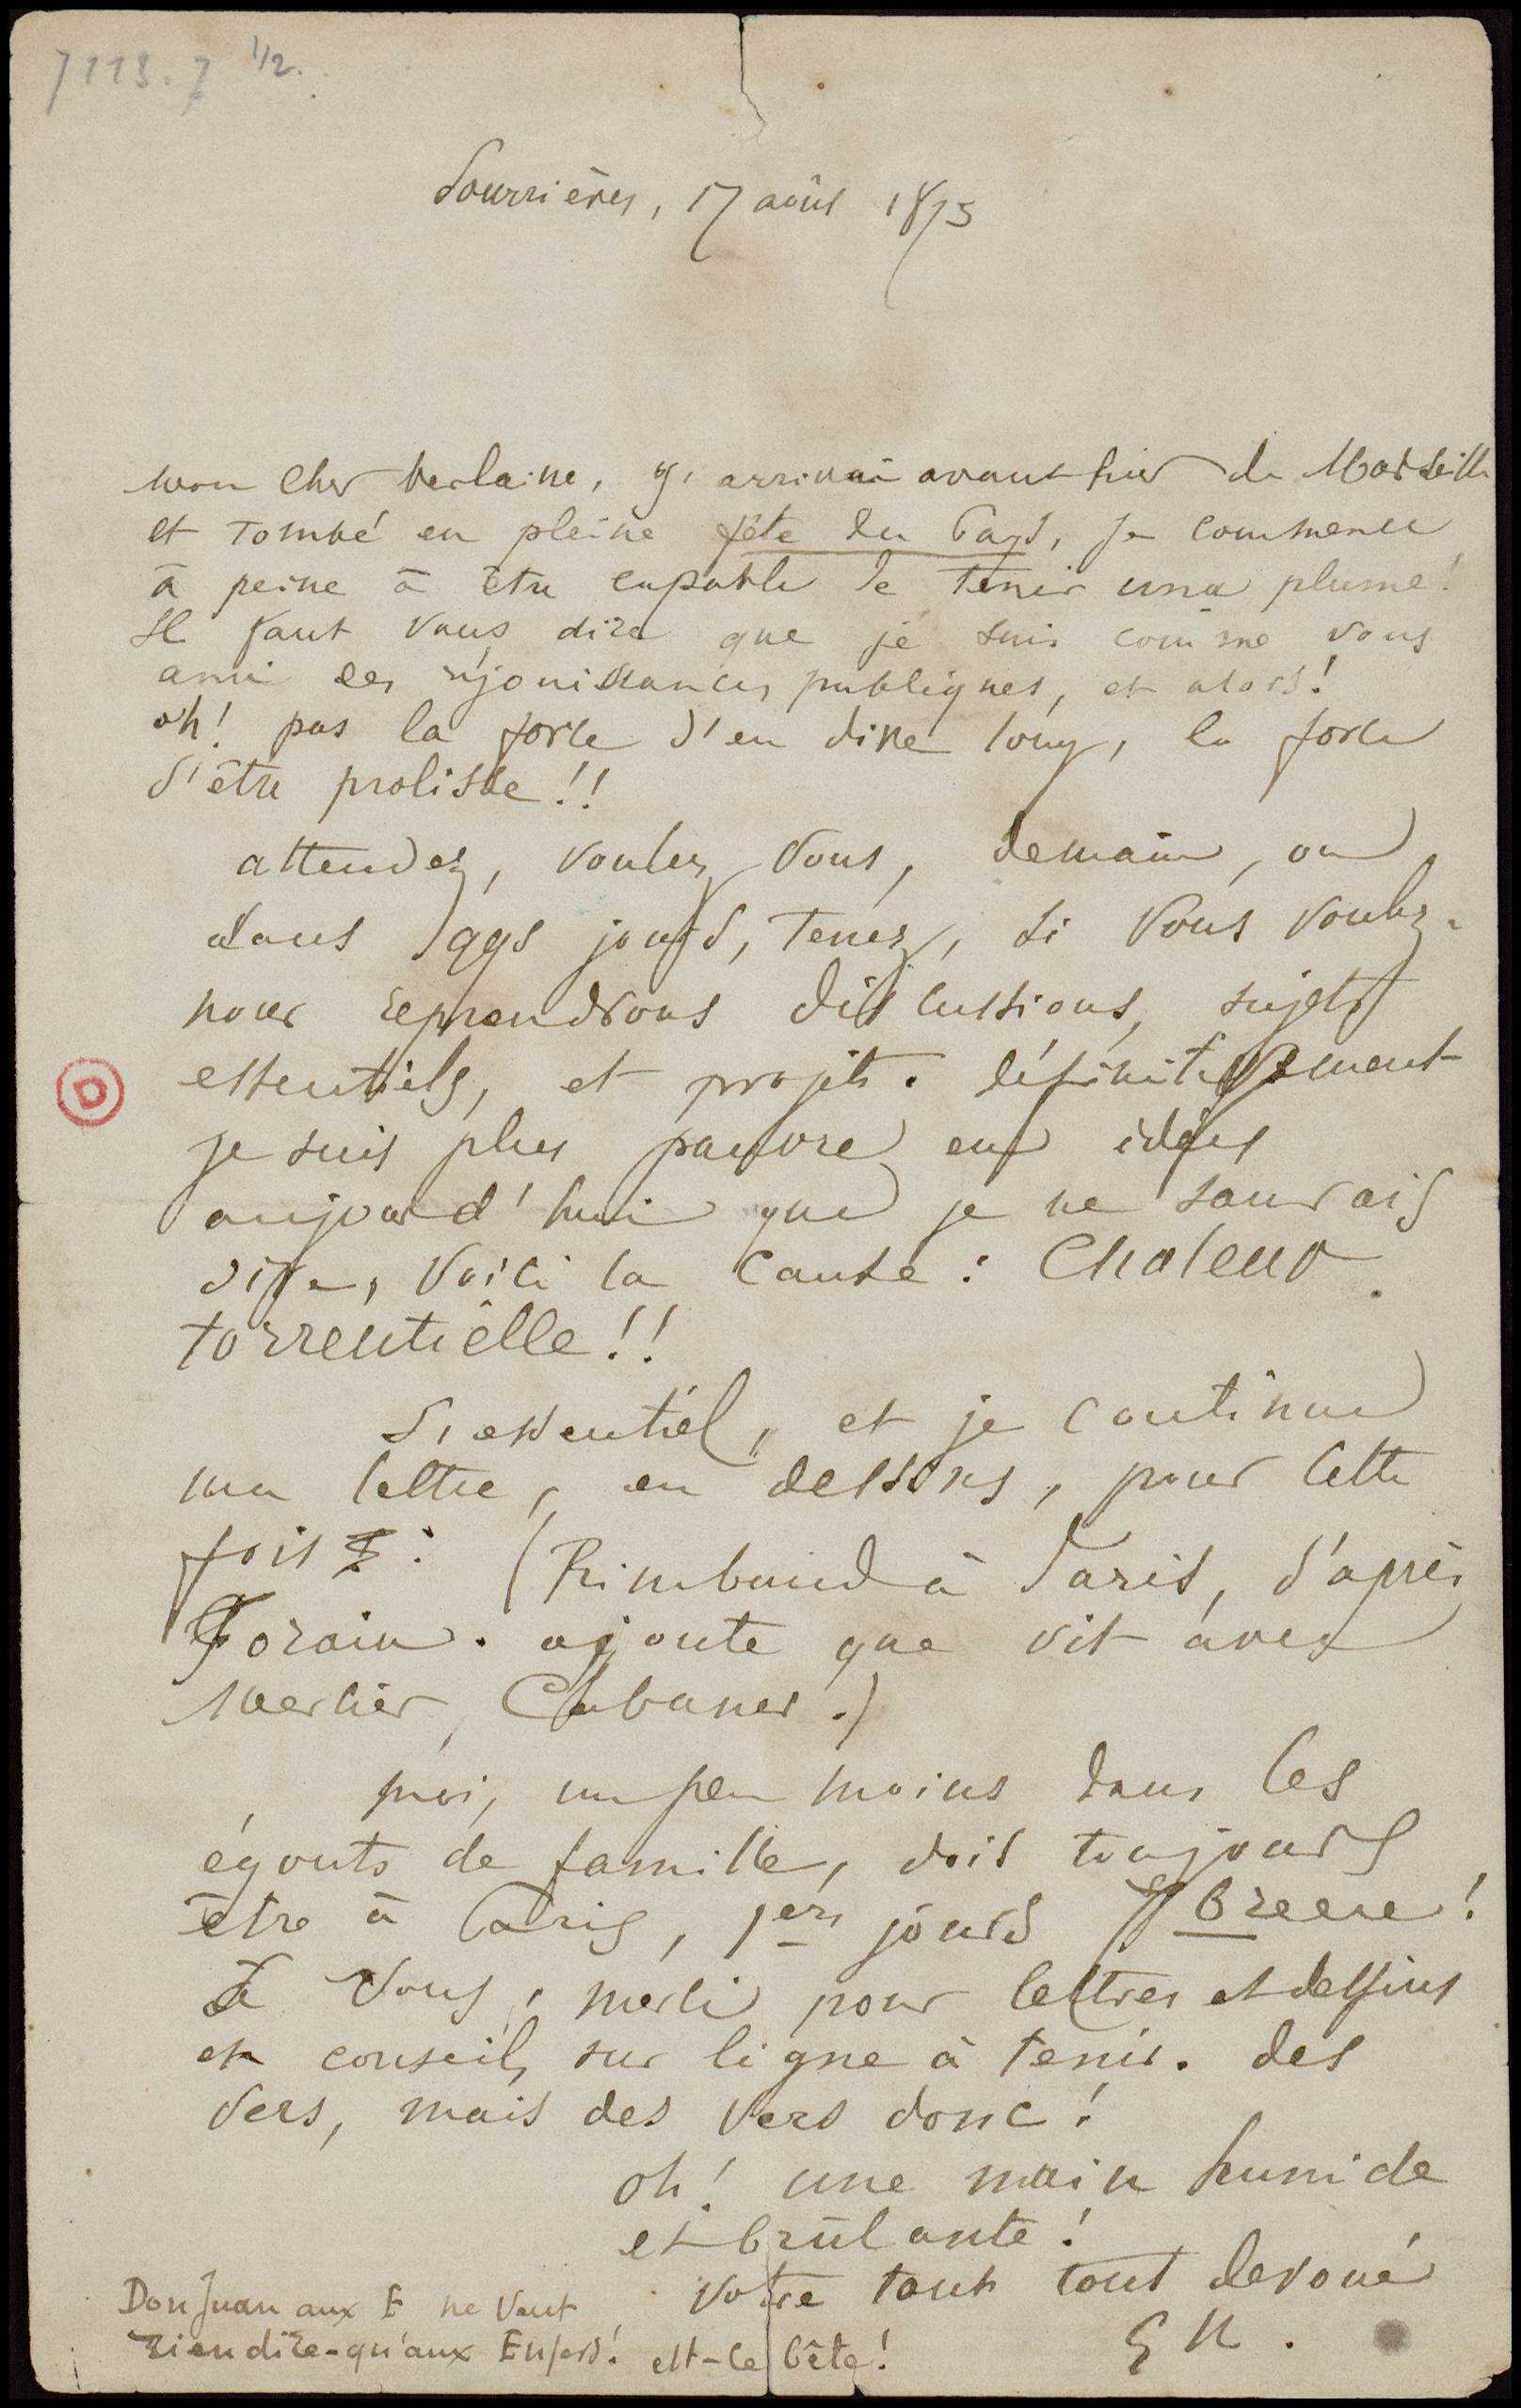 7113.7 1/2.
Pourrières, 17 août 1875
mon cher Verlaine, arrivai avant hier de Marseille
et tombé en pleine fête du Pays, je commence
à peine à être capable de tenir une plume!
Il faut vous dire que je suis comme vous
ami des réjouissances publiques, et alors!
oh! pas la force d'en dire long, la force
d'être prolisse!!
attendez, voulez vous, demain, ou
dans qqs jours, tenez, si vous voulez.
nous reprendrons discussions, sujets
essentiels, et projets. définitivement
D
je suis plus pauvre en idées
aujourd'hui que je ne saurais
dire, voici la cause: Chaleur
torrentielle!!
L'essentiel, et je continue
ma lettre, en dessins, pour cette
fois: (Rimbaud à Paris, d'après
Forain. ajoute que vit avec
mercier, Cabaner.)
moi, un peu moins dans les
égouts de famille, dois toujours
être à Paris, 1ers jours 8breere!
à vous, merci pour lettres et dessins
et conseils sur ligne à tenir. des
vers, mais des vers donc!
oh! une main humide
et brûlante!
votre tout tout dévoué
G N.
Don Juan aux E ne veut
rien dire-qu'aux Enfers! est-ce bête!